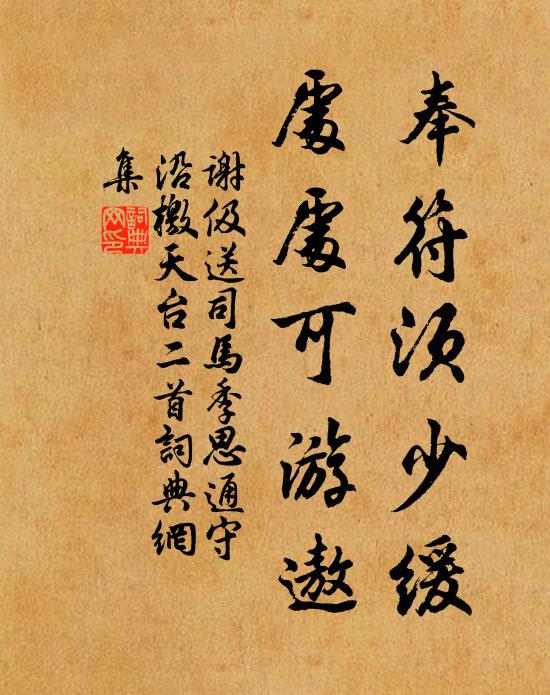 奉符須少緩
處處可游遨
謝伋送司馬季思通守
沿檄天台二首詞典網
集
詞典網印